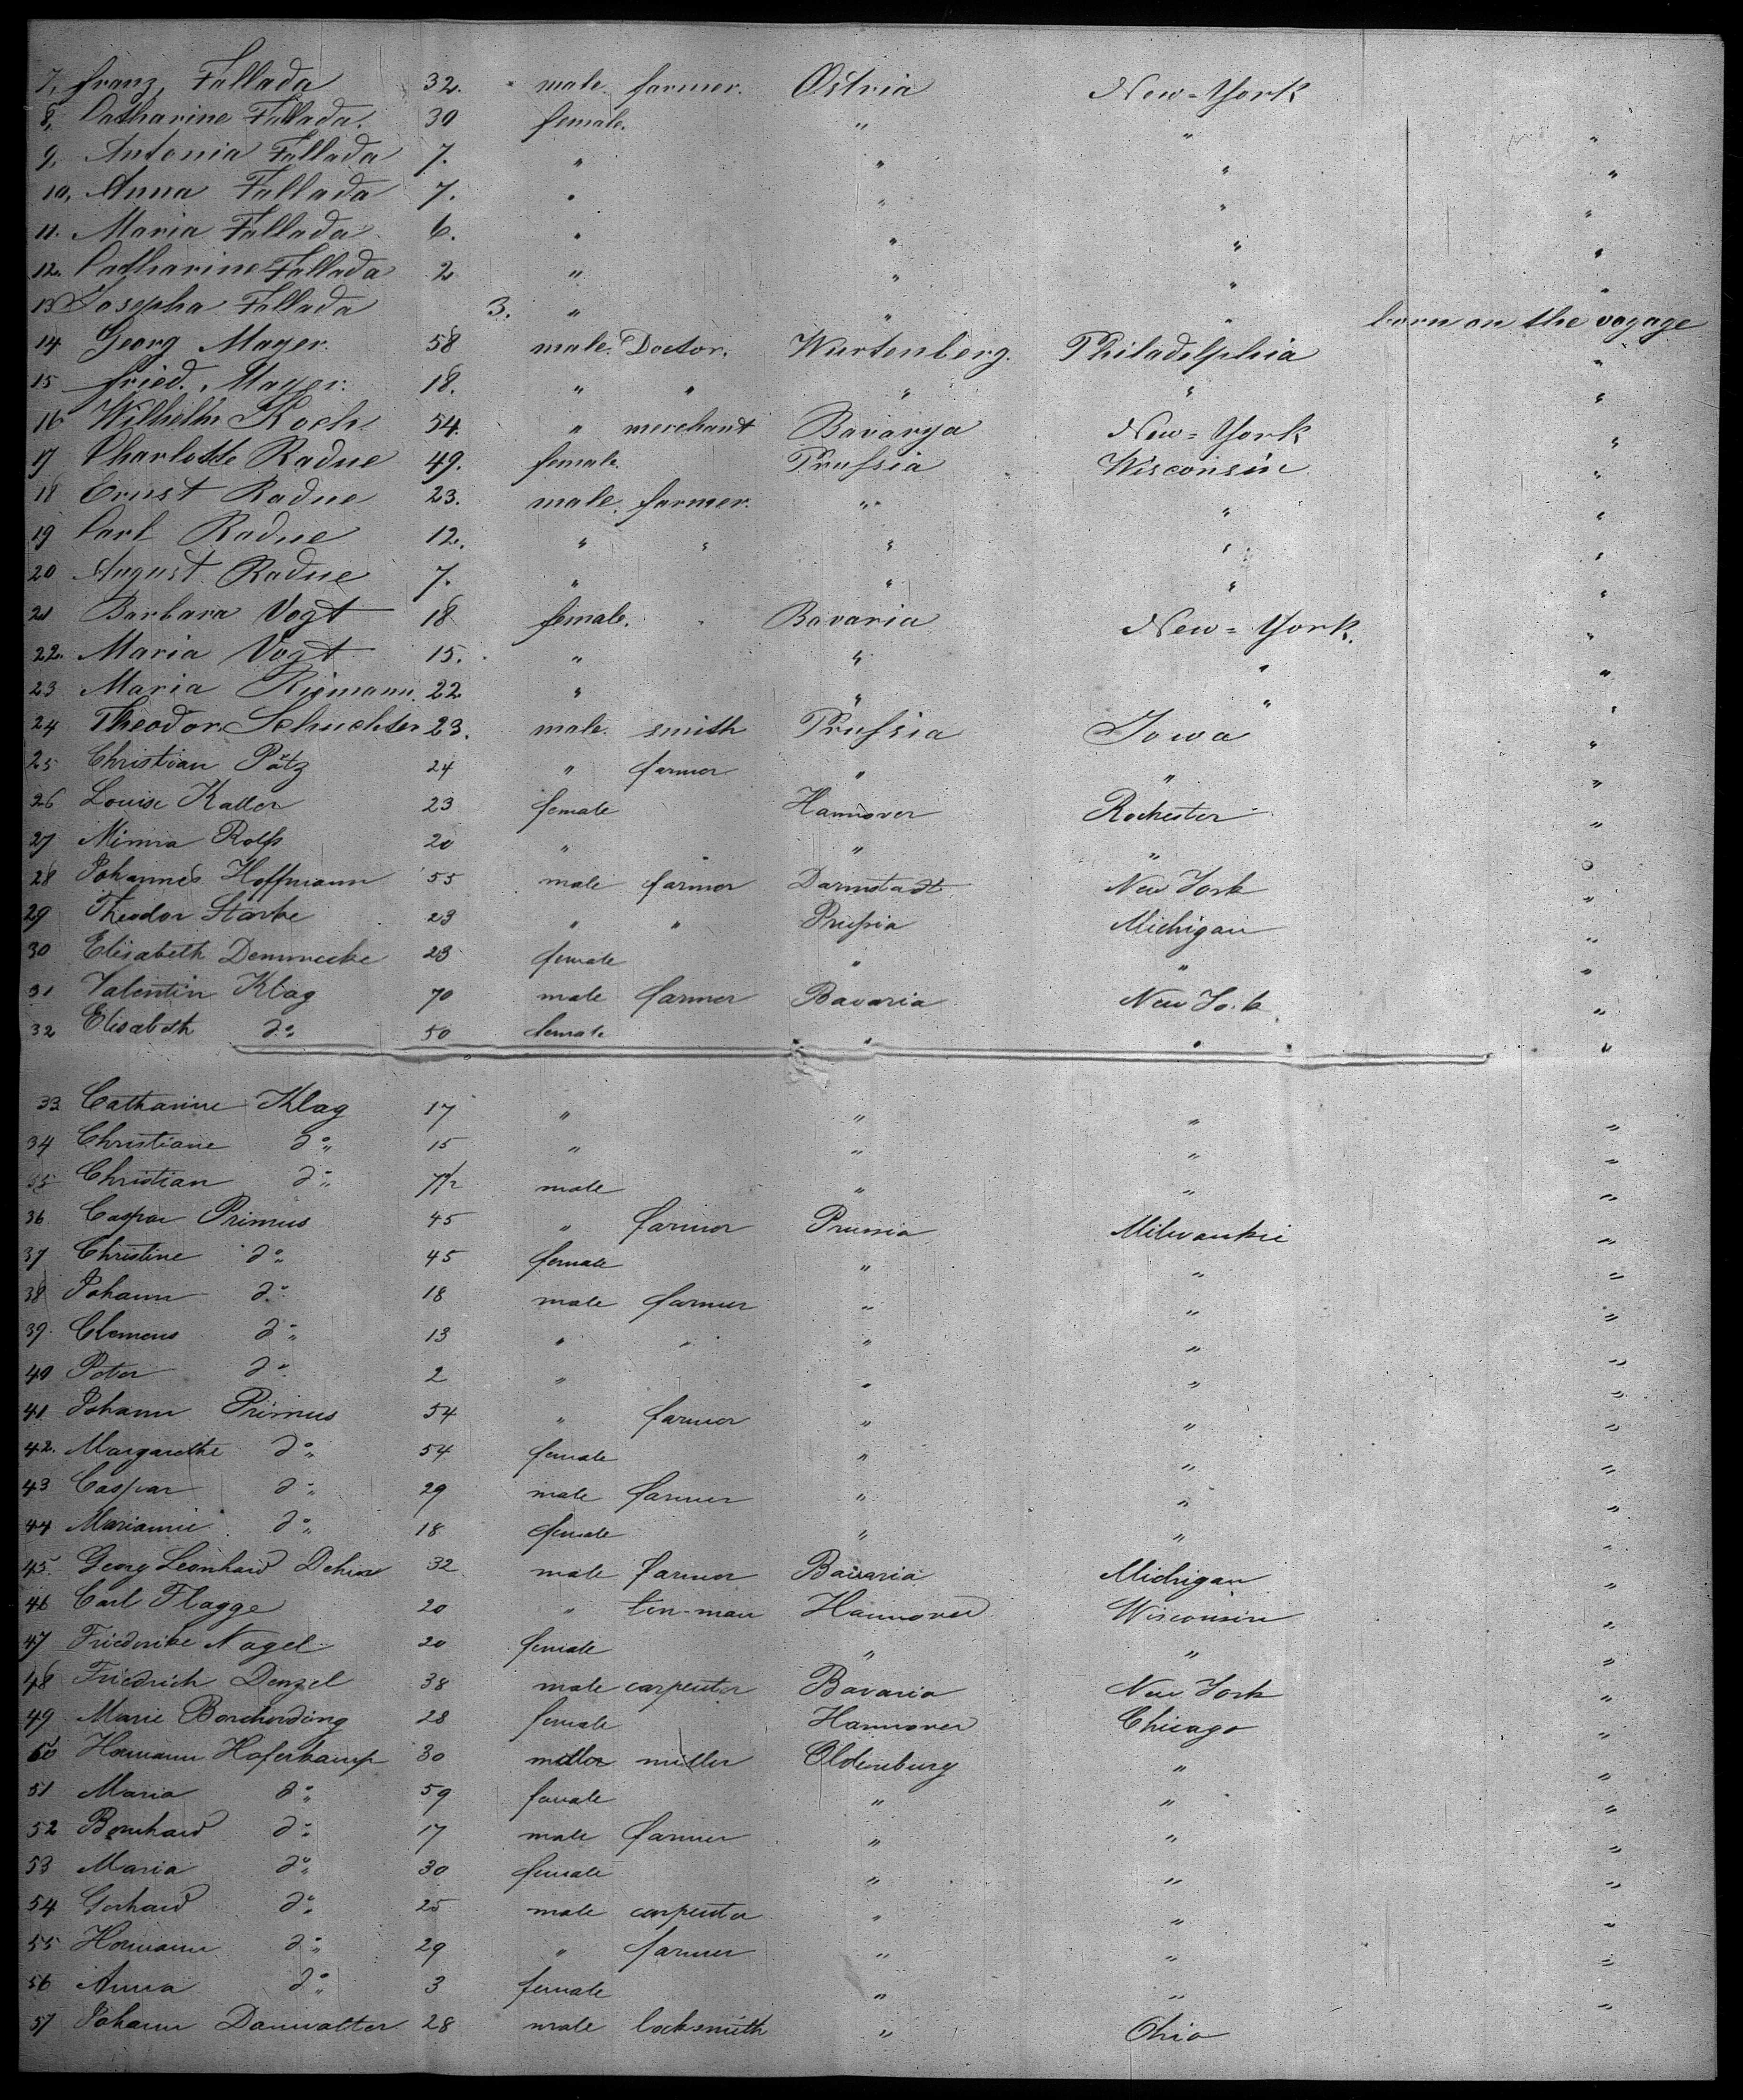 7, Franz, Fallada 32. male. farmer. Östria New=York
8, Catharine Fallada. 30 female. " " "
9, Antonia Fallada 7. " " " "
10, Anna Fallada 7. " " " "
11. Maria Fallada 6. " " " "
12. Catharine Fallada 2 " " " "
13 Josepha Fallada 3. " " " born on the voyage
14 Georg Mayer. 58 male. Doctor. Wurtenberg. Philadelphia "
15 Fried. Mayer. 18. " " " " "
16 Wilhelm Koch 54. " merchant Bavarya New=York "
17 Charlotte Radue 49. female. Prussia Wisconsin "
18 Ernst Radue 23. male. farmer. " " "
19 Carl Radue 12. " " " " "
20 August Radue 7. " " " "
21 Barbara Vogt 18 female. Bavaria New=York. "
22. Maria Vogt 15. " " " "
23 Maria Riemann. 22 " " " "
24 Theodor Schuchter 23. male. smith Prussia Iowa "
25 Christian Pätz 24 " farmer " " "
26 Louise Katter 23 female Hannover Rochester "
27 Minna Rolfs 20 " " " "
28 Johannes Hoffmann 55 male farmer Darmstadt New York "
29 Theodor Starke 23 " " Prussia Michigan "
30 Elisabeth Demmecke 23 female " " "
31 Valentin Klag 70 male farmer Bavaria New York "
32 Elisabeth do 50 female " " "
33 Catharine Klag 17 " " " "
34 Christiane do 15 " " " "
35 Christian do 7½ male " " "
36 Caspar Primus 45 " farmer Prussia Milwaukie "
37 Christine do 45 female " " "
38 Johann do 18 male farmer " " "
39. Clemens do 13 " " " " "
40 Peter do 2 " " " "
41 Johann Primus 54 " farmer " " "
42. Margarethe do 54 female " " "
43 Caspar do 29 male farmer " " "
44 Marianne do 18 female " " "
45. Georg Leonhard Dehm 32 male farmer Bavaria Michigan "
46 Carl Flagge 20 " tin-man Hannover Wisconsin "
47 Friederike Nagel 20 female " " "
48 Friedrich Denzel 38 male carpenter Bavaria New York "
49 Marie Borcherding 28 female Hannover Chicago "
50 Hermann Hoferkamp 30 miller Oldenburg " "
51 Maria do 59 female " " "
52 Bernhard do 17 male farmer " " "
53 Maria do 30 female " " "
54 Gerhard do 25 male carpenter " " "
55 Hermann do 29 " farmer " " "
56 Anna do 3 female " " "
57 Johann Danwatter 28 male locksmith " Ohio